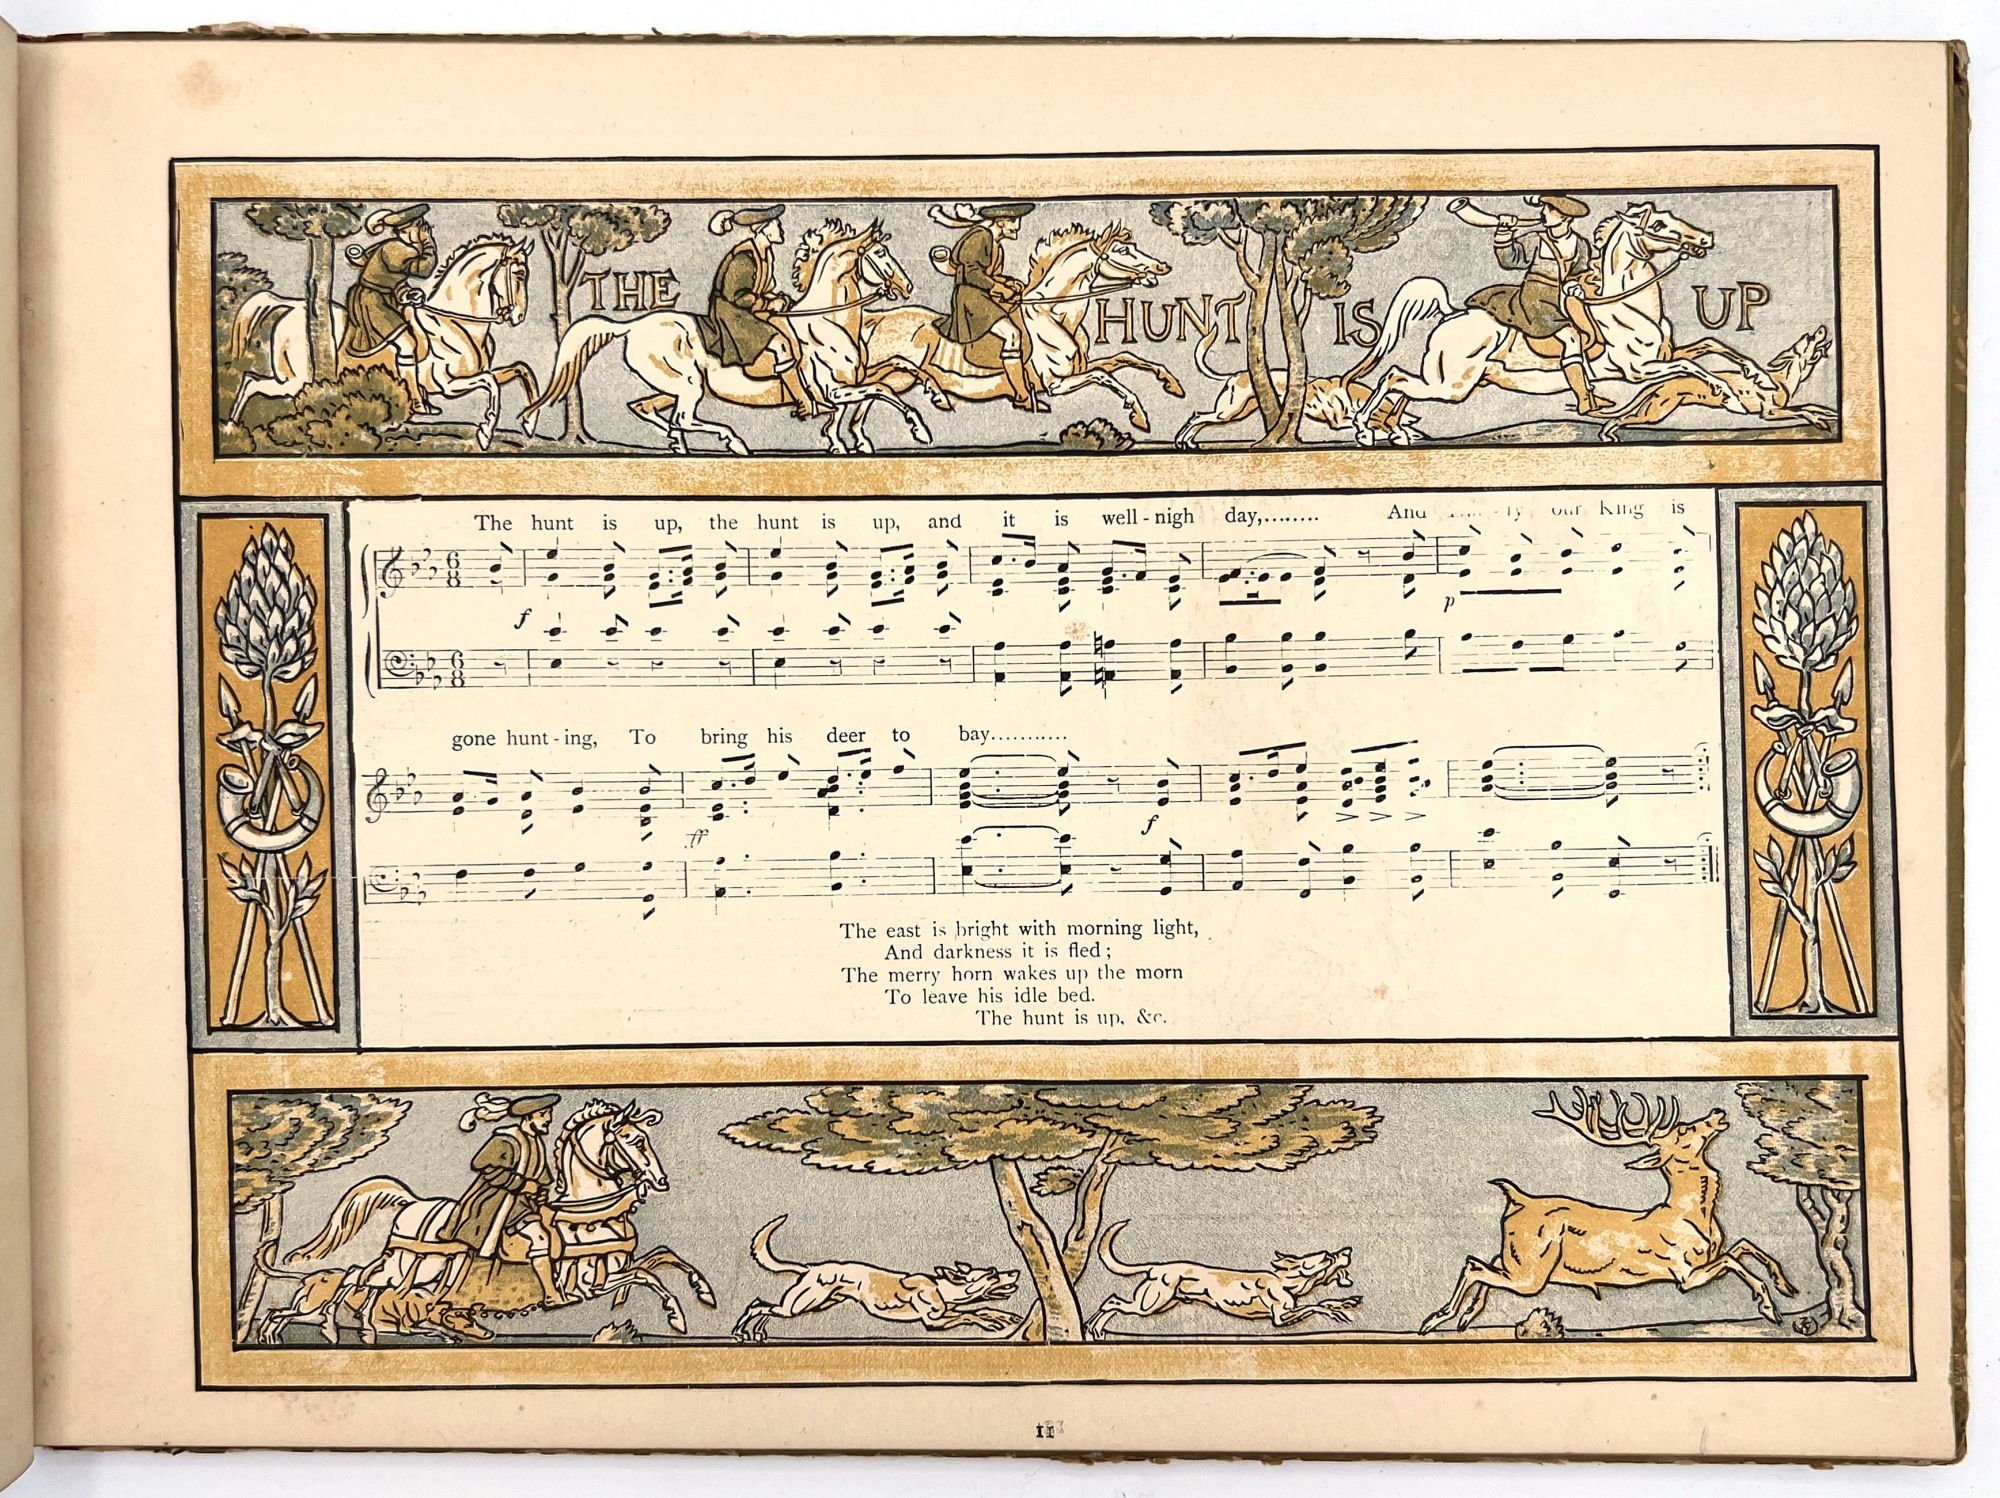 THE HUNT IS UP
The hunt is up, the hunt is up, and it is well-nigh day,........ And our King is
f
p
gone hunt-ing, To bring his deer to bay...........
ff
f
The east is bright with morning light,
And darkness it is fled;
The merry horn wakes up the morn
To leave his idle bed.
The hunt is up, &c.
11